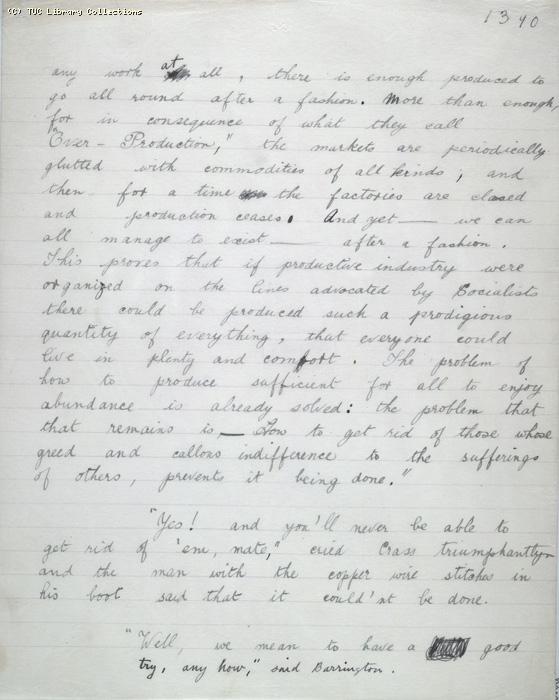 (C) TUC Library Collections
1390
any work at all, there is enough produced to
go all round after a fashion. More than enough,
for in consequence of what they call
"Over-Production," the markets are periodically
glutted with commodities of all kinds, and
then for a time the factories are closed
and production ceases. And yet — we can
all manage to exist — after a fashion.
This proves that if productive industry were
organized on the lines advocated by Socialists
there could be produced such a prodigious
quantity of everything, that everyone could
live in plenty and comfort. The problem of
how to produce sufficient for all to enjoy
abundance is already solved: the problem that
that remains is — How to get rid of those whose
greed and callous indifference to the sufferings
of others, prevents it being done."
"Yes! and you'll never be able to
get rid of 'em, mate," cried Crass triumphantly —
and the man with the copper wire stitches in
his boot said that it could'nt be done.
"Well, we mean to have a good
try, any how," said Barrington.